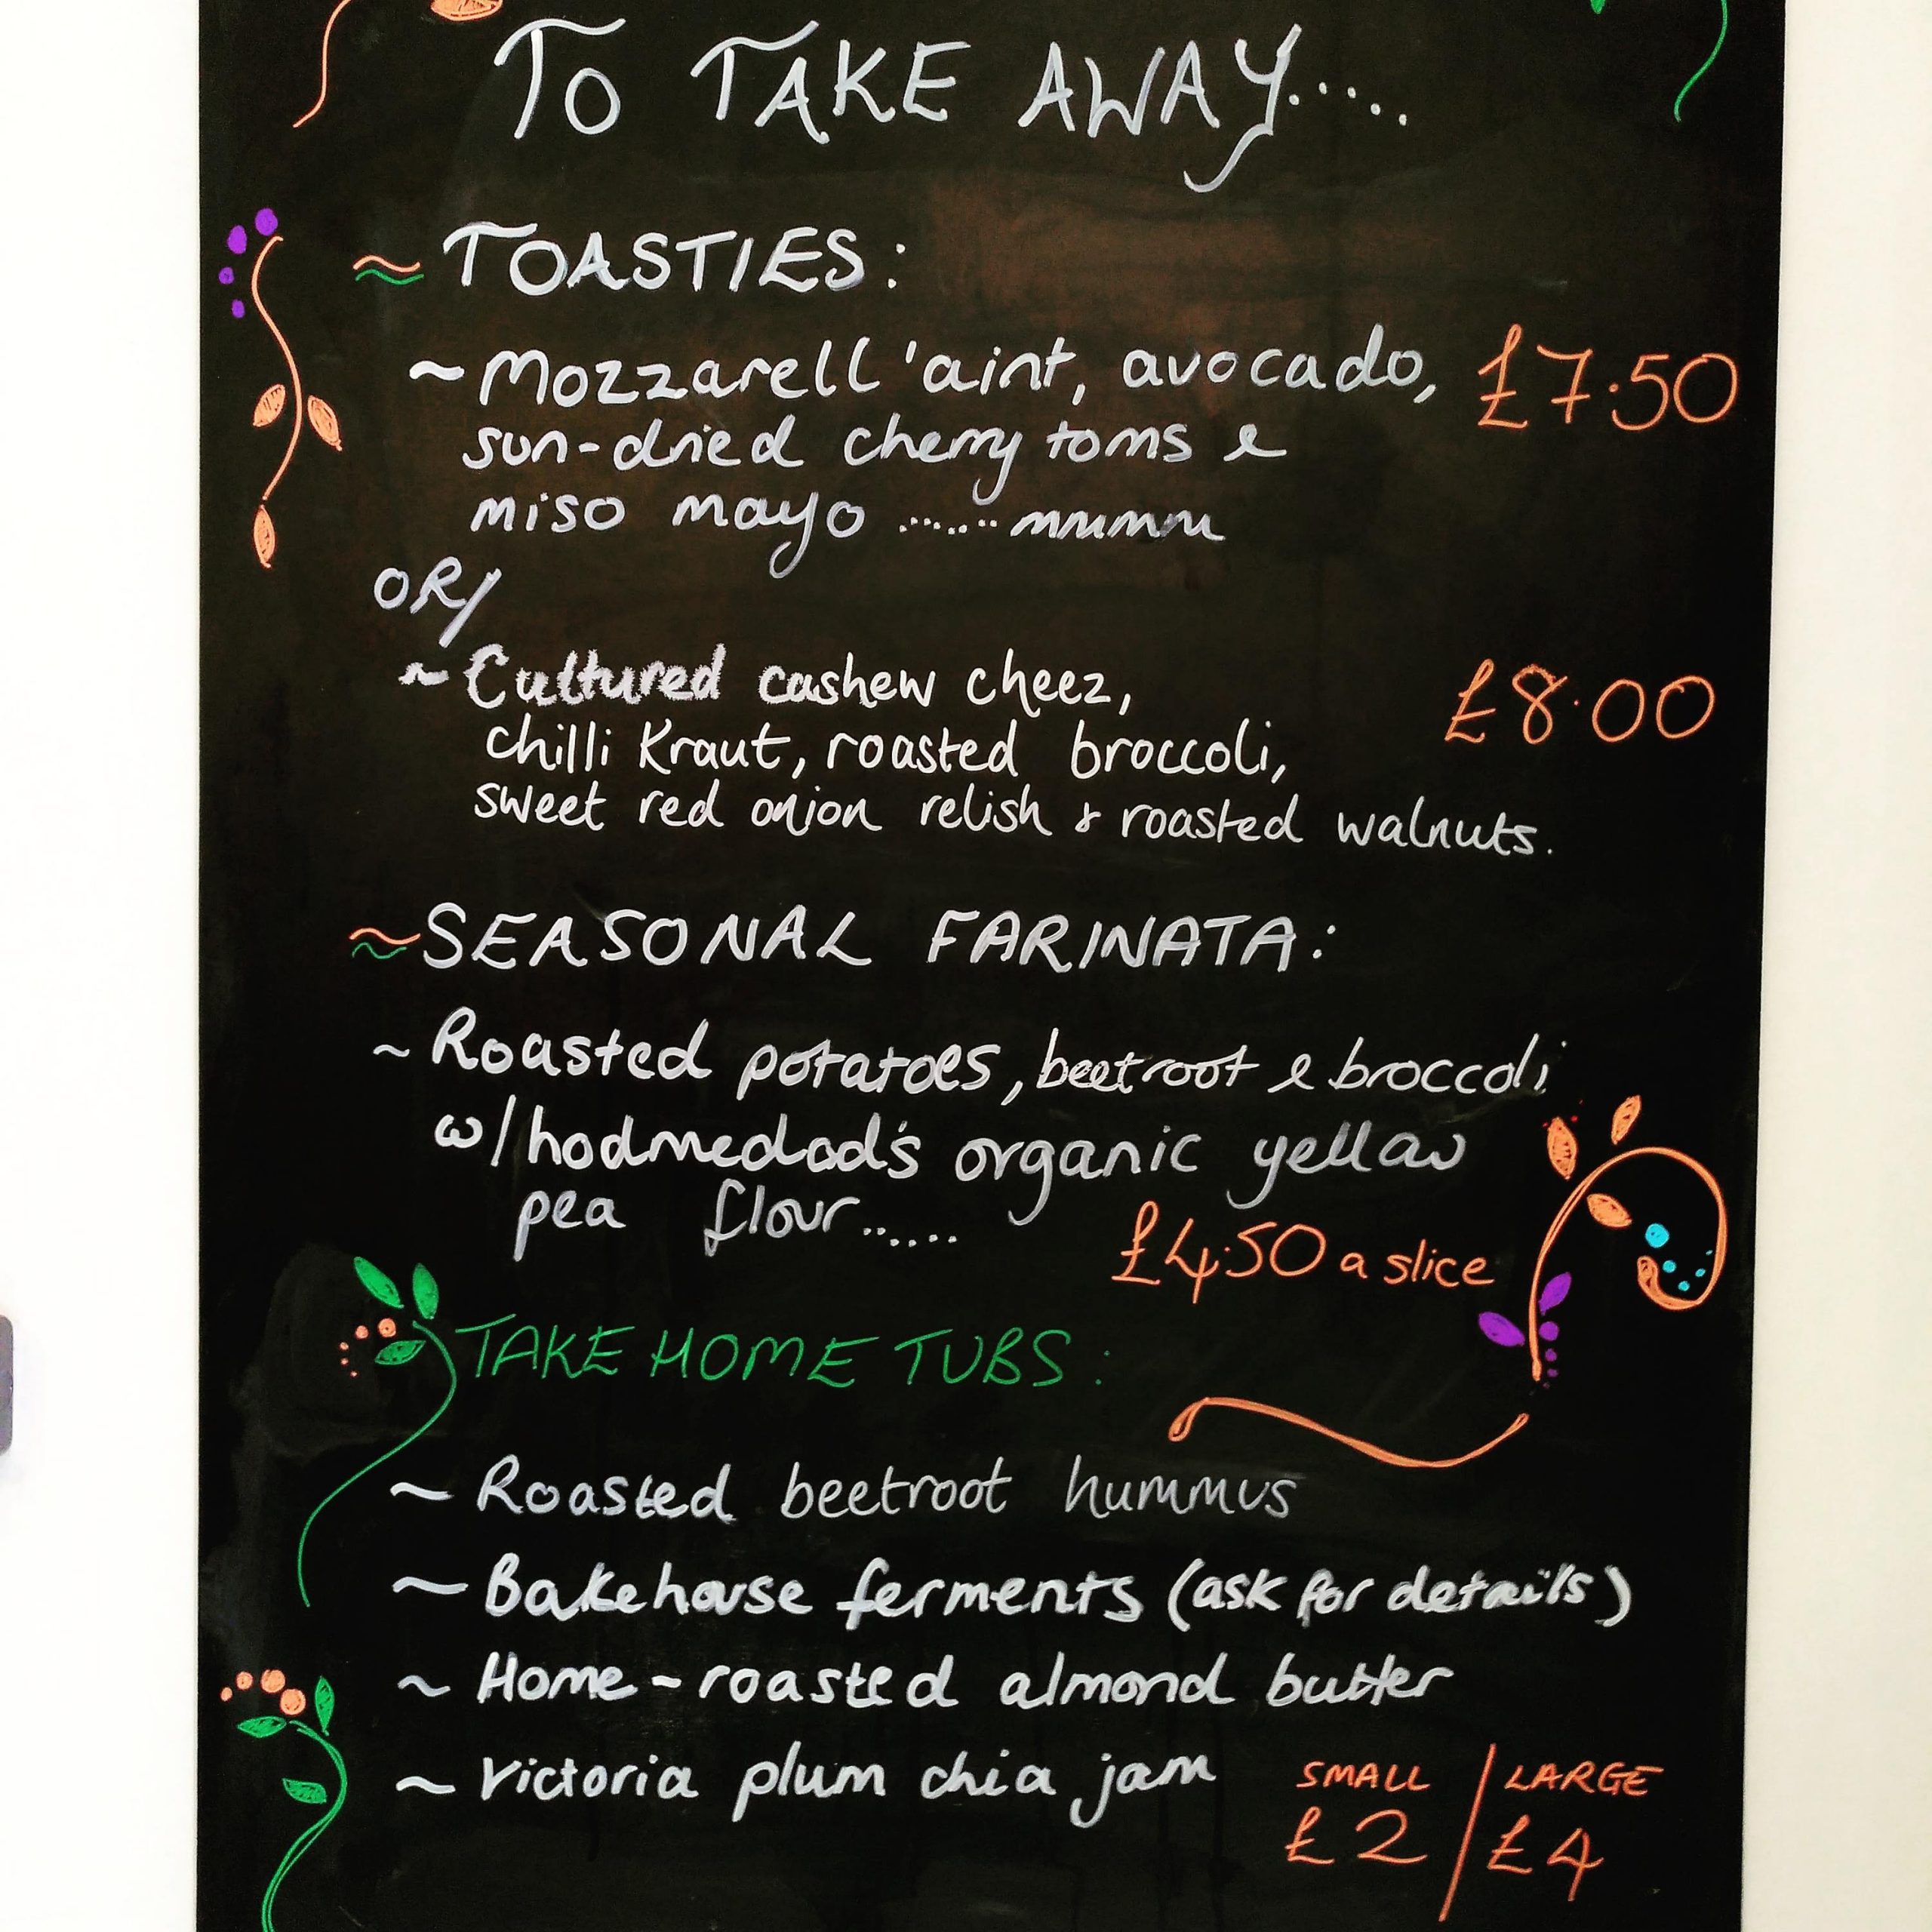 TO TAKE AWAY.....
~ TOASTIES:
~ Mozzarell 'aint, avocado, £7.50
sun-dried cherry toms &
miso mayo ....... mmmm
OR/
~ Cultured cashew cheez, £8.00
chilli Kraut, roasted broccoli,
sweet red onion relish & roasted walnuts.
~ SEASONAL FARINATA:
~ Roasted potatoes, beetroot & broccoli
w/ hodmedod's organic yellow
pea flour......
£4.50 a slice
TAKE HOME TUBS:
~ Roasted beetroot hummus
~ Bakehouse ferments (ask for details)
~ Home-roasted almond butter
~ Victoria plum chia jam
SMALL / LARGE
£2 / £4